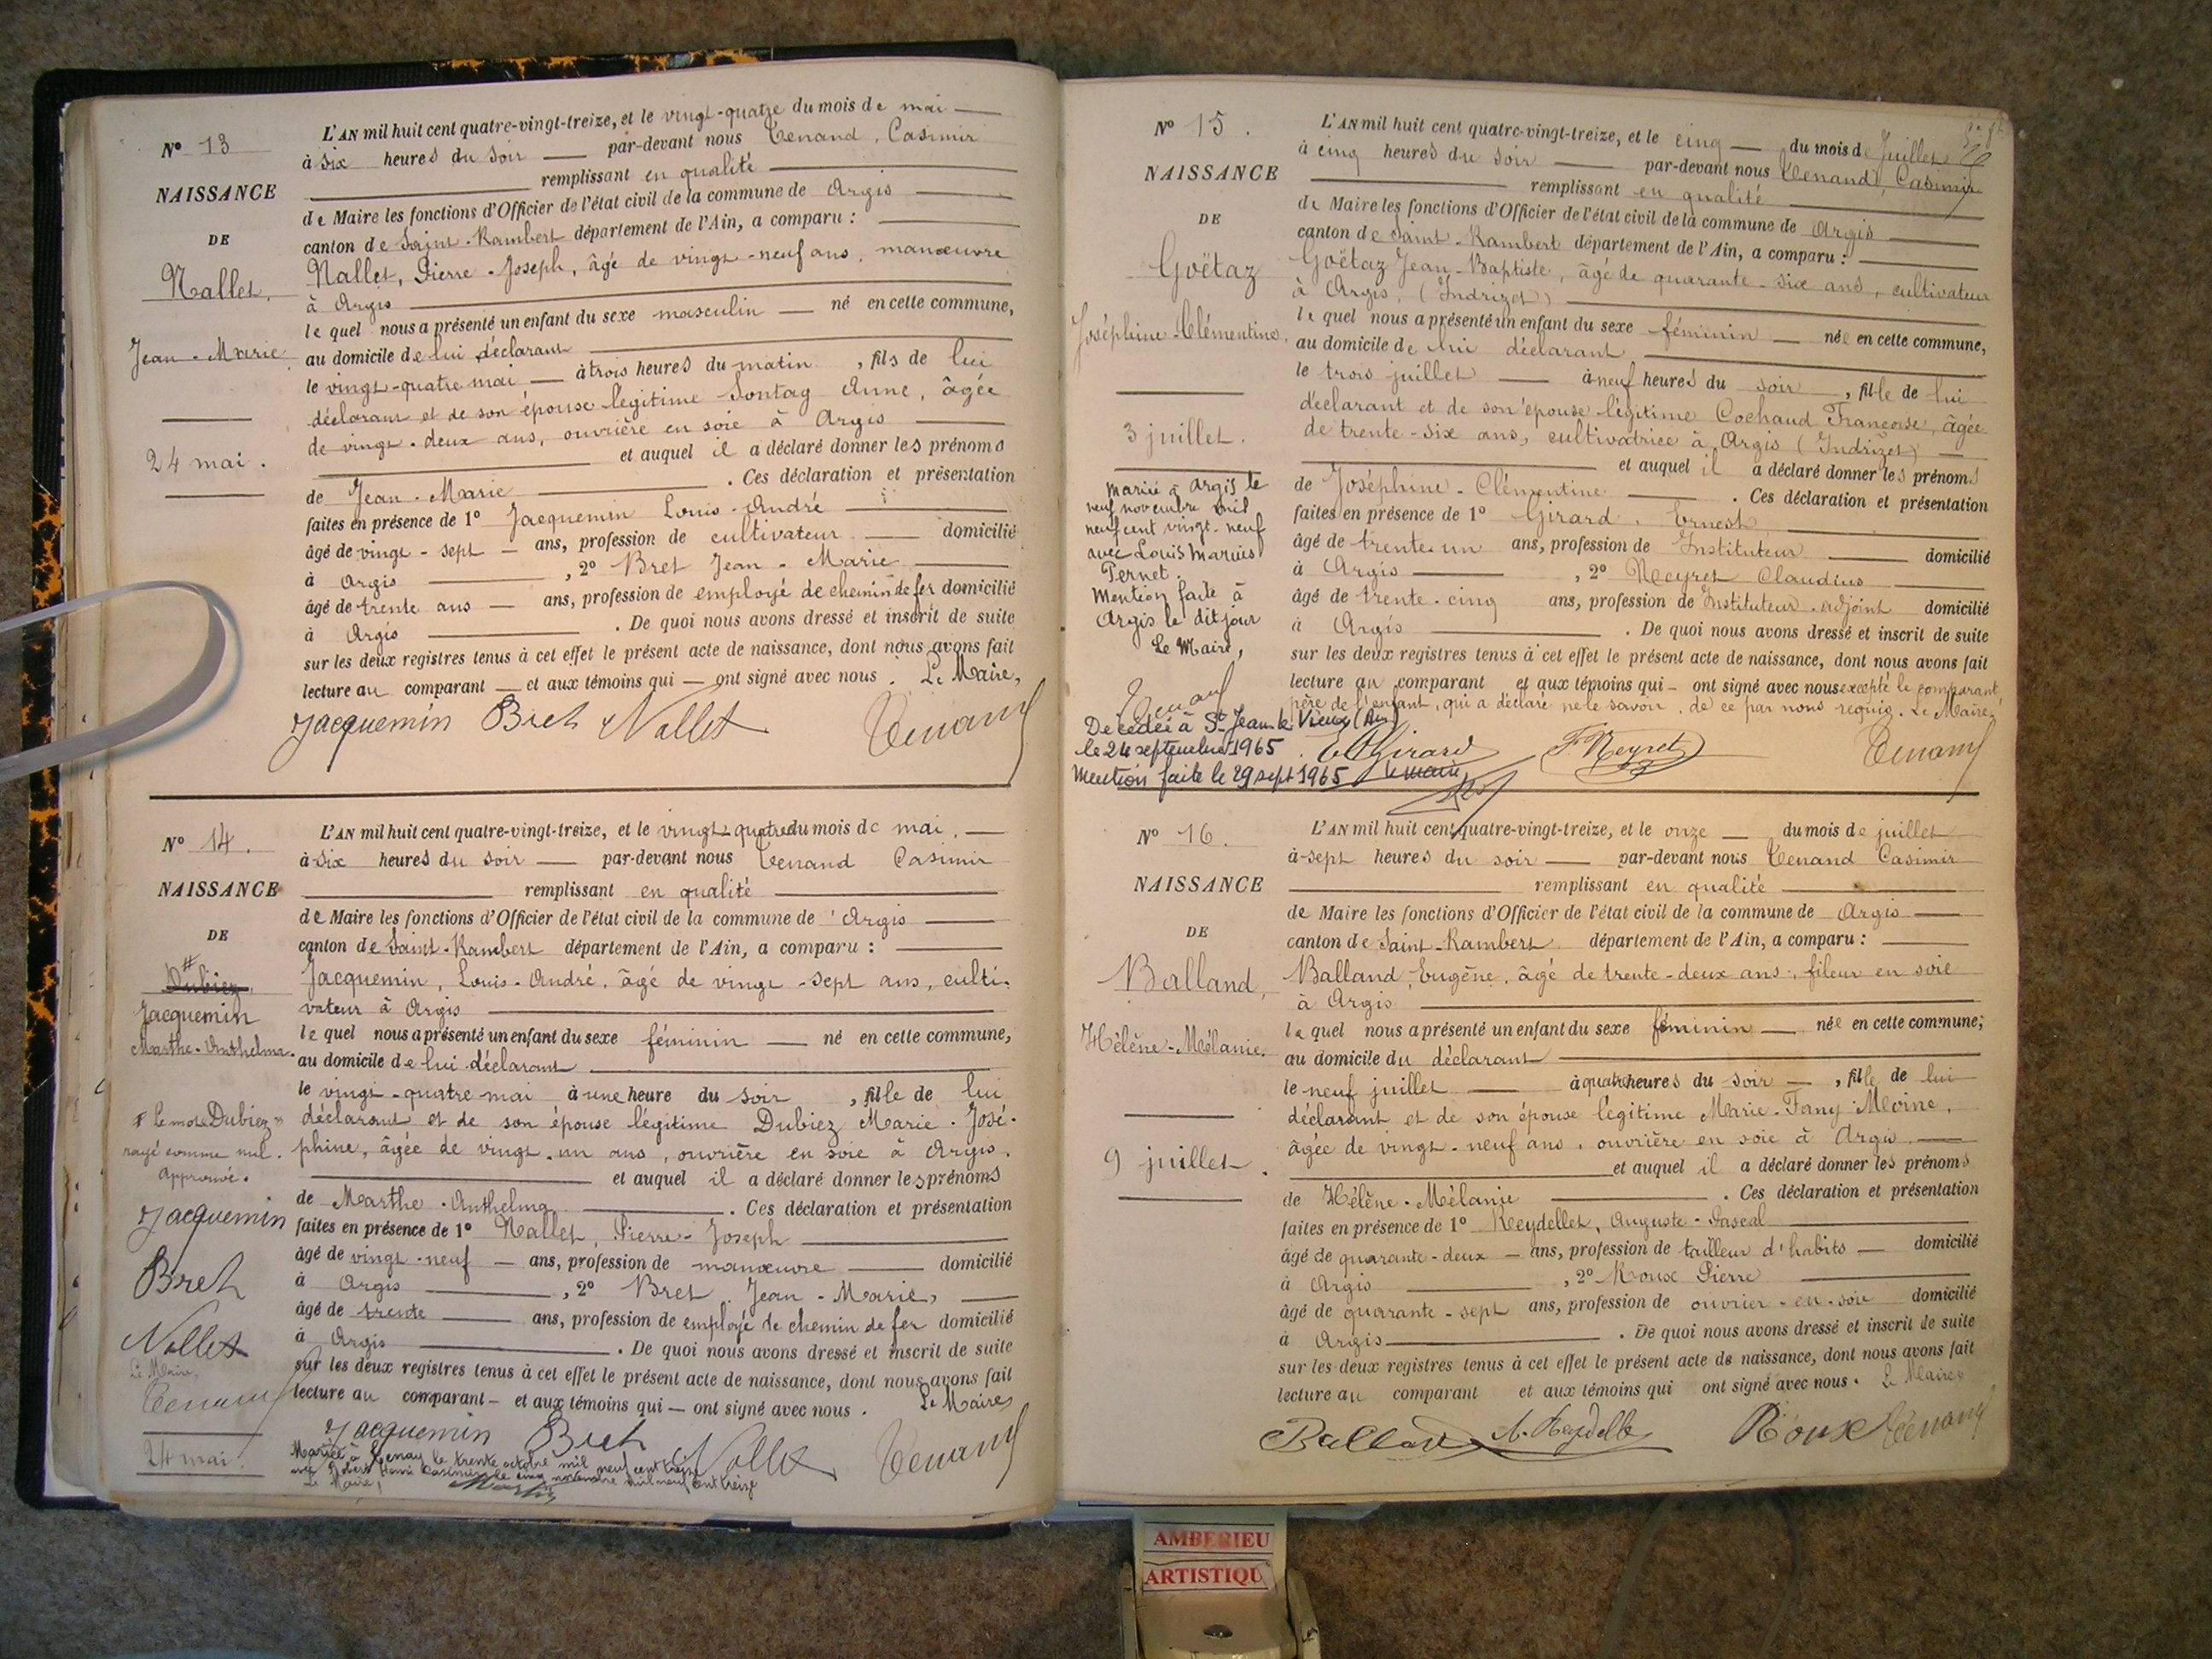 N° 13
NAISSANCE
DE
Nallet,
Jean-Marie
24 mai.
L'AN mil huit cent quatre-vingt-treize, et le vingt-quatre du mois de mai
à six heures du soir par-devant nous Tenand, Casimir
remplissant en qualité
de Maire les fonctions d'Officier de l'état civil de la commune de Argis
canton de Saint-Rambert département de l'Ain, a comparu :
Nallet, Pierre-Joseph, âgé de vingt-neuf ans, manœuvre
à Argis
lequel nous a présenté un enfant du sexe masculin né en cette commune,
au domicile de lui déclarant
le vingt-quatre mai à trois heures du matin, fils de lui
déclarant et de son épouse légitime Sontag Anne, âgée
de vingt-deux ans, ouvrière en soie à Argis
et auquel il a déclaré donner les prénoms
de Jean-Marie. Ces déclaration et présentation
faites en présence de 1° Jacquemin Louis-André
âgé de vingt-sept ans, profession de cultivateur domicilié
à Argis, 2° Bret Jean-Marie
âgé de trente ans ans, profession de employé de chemin de fer domicilié
à Argis. De quoi nous avons dressé et inscrit de suite
sur les deux registres tenus à cet effet le présent acte de naissance, dont nous avons fait
lecture au comparant et aux témoins qui ont signé avec nous. Le Maire,
Jacquemin Bret Nallet Tenand
N° 14.
NAISSANCE
DE
Dubiez
Jacquemin
Marthe-Anthelma.
# Le mot "Dubiez"
rayé comme nul.
Approuvé.
Jacquemin
Bret
Nallet
Le Maire,
Tenand
24 mai.
L'AN mil huit cent quatre-vingt-treize, et le vingt-quatre du mois de mai.
à six heures du soir par-devant nous Tenand Casimir
remplissant en qualité
de Maire les fonctions d'Officier de l'état civil de la commune de Argis
canton de Saint-Rambert département de l'Ain, a comparu :
Jacquemin, Louis-André, âgé de vingt-sept ans, culti-
vateur à Argis
lequel nous a présenté un enfant du sexe féminin né en cette commune,
au domicile de lui déclarant
le vingt-quatre mai à une heure du soir, fille de lui
déclarant et de son épouse légitime Dubiez Marie-José-
phine, âgée de vingt-un ans, ouvrière en soie à Argis.
et auquel il a déclaré donner les prénoms
de Marthe-Anthelma. Ces déclaration et présentation
faites en présence de 1° Nallet, Pierre-Joseph
âgé de vingt-neuf ans, profession de manœuvre domicilié
à Argis, 2° Bret Jean-Marie,
âgé de trente ans, profession de employé de chemin de fer domicilié
à Argis. De quoi nous avons dressé et inscrit de suite
sur les deux registres tenus à cet effet le présent acte de naissance, dont nous avons fait
lecture au comparant et aux témoins qui ont signé avec nous. Le Maire,
Jacquemin Bret Nallet Tenand
Mariée à Tenay le trente octobre mil neuf cent treize
avec Henri Casimir le cinq novembre mil neuf cent treize
Le Maire, Martin
N° 15.
NAISSANCE
DE
Goëtaz
Joséphine-Clémentine.
3 juillet.
Marié à Argis le
neuf novembre mil
neuf cent vingt-neuf
avec Louis Marius
Pernet.
Mention faite à
Argis le dit jour
Le Maire,
Tenand
Décédée à St Jean le Vieux (Ain)
le 24 septembre 1965
Mention faite le 29 sept 1965 Le maire,
L'AN mil huit cent quatre-vingt-treize, et le cinq du mois de Juillet
à cinq heures du soir par-devant nous Tenand, Casimir
remplissant en qualité
de Maire les fonctions d'Officier de l'état civil de la commune de Argis
canton de Saint-Rambert département de l'Ain, a comparu :
Goëtaz Jean-Baptiste, âgé de quarante-six ans, cultivateur
à Argis, (Indrizet)
lequel nous a présenté un enfant du sexe féminin née en cette commune,
au domicile de lui déclarant
le trois juillet à neuf heures du soir, fille de lui
déclarant et de son épouse légitime Cochaud Françoise, âgée
de trente-six ans, cultivatrice à Argis (Indrizet)
et auquel il a déclaré donner les prénoms
de Joséphine-Clémentine. Ces déclaration et présentation
faites en présence de 1° Girard, Ernest
âgé de trente-un ans, profession de Instituteur domicilié
à Argis, 2° Neyret Claudius
âgé de trente-cinq ans, profession de Instituteur-adjoint domicilié
à Argis. De quoi nous avons dressé et inscrit de suite
sur les deux registres tenus à cet effet le présent acte de naissance, dont nous avons fait
lecture au comparant et aux témoins qui ont signé avec nous excepté le comparant,
père de l'enfant, qui a déclaré ne le savoir, de ce par nous requis. Le Maire,
E. Girard F. Neyret Tenand
N° 16.
NAISSANCE
DE
Balland,
Hélène-Mélanie.
9 juillet.
L'AN mil huit cent quatre-vingt-treize, et le onze du mois de juillet
à sept heures du soir par-devant nous Tenand Casimir
remplissant en qualité
de Maire les fonctions d'Officier de l'état civil de la commune de Argis
canton de Saint-Rambert département de l'Ain, a comparu :
Balland, Eugène, âgé de trente-deux ans, fileur en soie
à Argis
lequel nous a présenté un enfant du sexe féminin née en cette commune;
au domicile du déclarant
le neuf juillet à quatre heures du soir, fille de lui
déclarant et de son épouse légitime Marie-Fany Moine,
âgée de vingt-neuf ans, ouvrière en soie à Argis.
et auquel il a déclaré donner les prénoms
de Hélène-Mélanie. Ces déclaration et présentation
faites en présence de 1° Reydellet, Auguste-Pascal
âgé de quarante-deux ans, profession de tailleur d'habits domicilié
à Argis, 2° Roux Pierre
âgé de quarante-sept ans, profession de ouvrier-en-soie domicilié
à Argis. De quoi nous avons dressé et inscrit de suite
sur les deux registres tenus à cet effet le présent acte de naissance, dont nous avons fait
lecture au comparant et aux témoins qui ont signé avec nous. Le Maire
Balland A. Reydellet Roux Tenand
AMBERIEU
ARTISTIQU